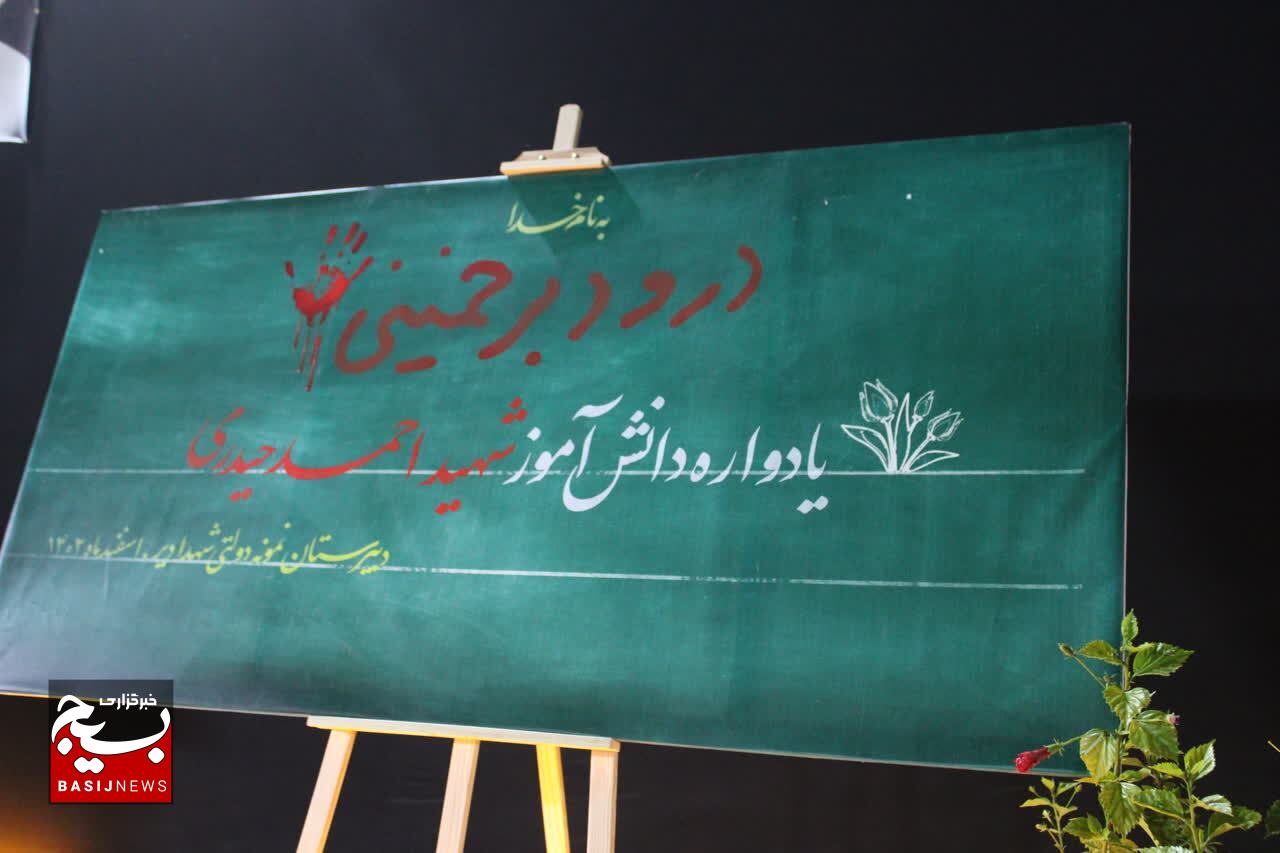 به نام خدا
درود بر خمینی
یادواره دانش آموز شهید احمد حیدری
دبیرستان نمونه دولتی شهدا دیر. اسفند ماه ۱۴۰۲
خبرگزاری
بسیج
BASIJNEWS